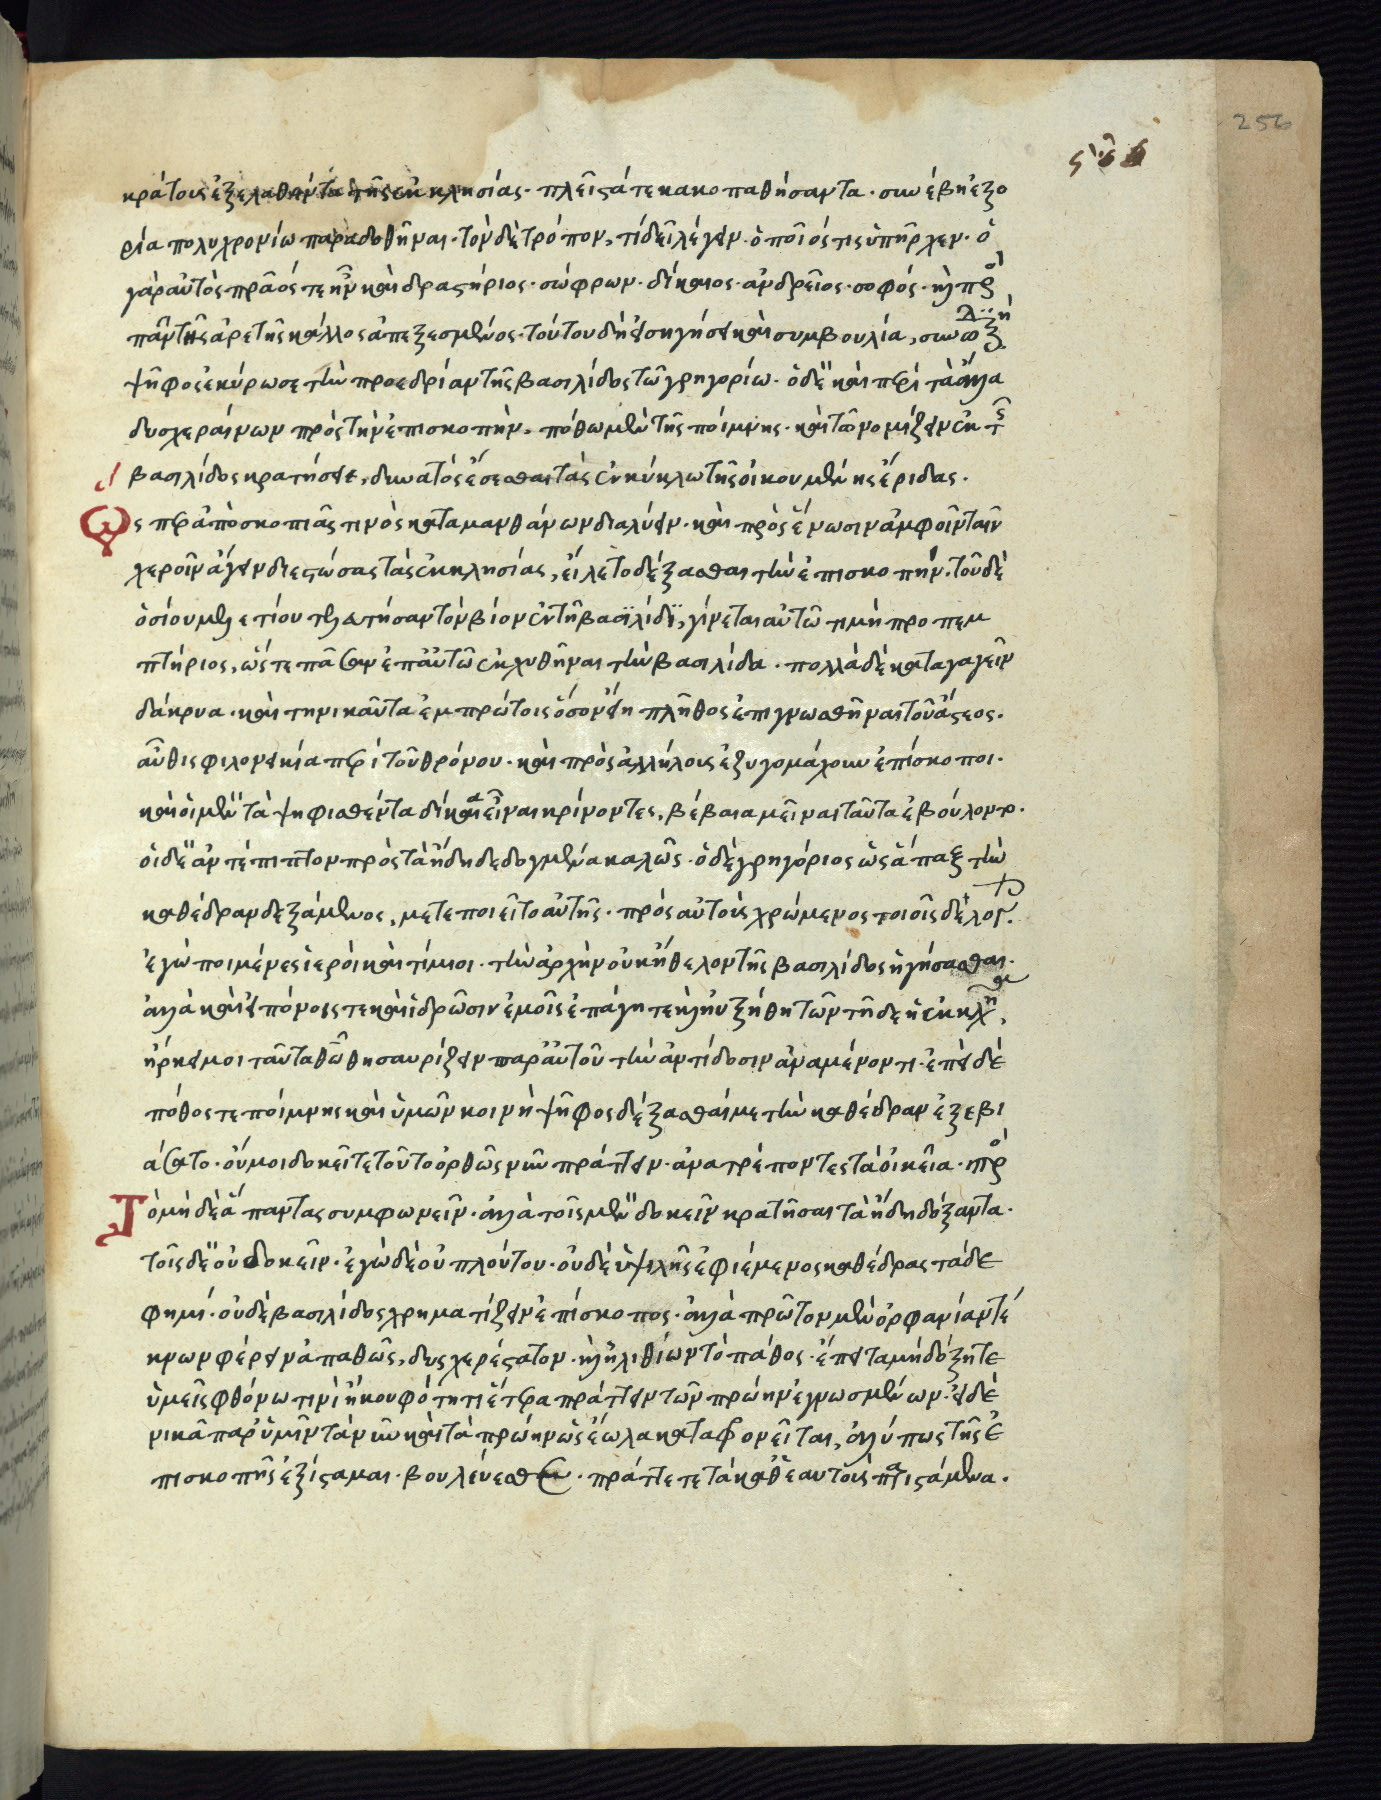 256
κράτους ἐξελαθέντα τῆς ἐκκλησίας· πλεῖστά τε κακοπαθήσαντα· συνέβη ἐξο
ρία πολυχρονίω παραδοθῆναι· τὸν δὲ τρόπον, τί δεῖ λέγειν· ὁποῖός τις ὑπῆρχεν· ὁ
γὰρ αὐτὸς πρᾶός τε ἦν καὶ δραστήριος· σώφρων· δίκαιος· ἀνδρεῖος· σοφός· καὶ πρὸς
πᾶν τῆς ἀρετῆς κάλλος ἀπεξεσμένος· τούτου δὴ εἰσηγήσει καὶ συμβουλία, συνοδικὴ
ψῆφος ἐκύρωσε τὴν προεδρίαν τῆς βασιλίδος τῶ γρηγορίω· ὁ δὲ καὶ περὶ τὰ ἄλλα
δυσχεραίνων πρὸς τὴν ἐπισκοπὴν· πόθω μὲν τῆς ποίμνης· καὶ τῶ νομίζειν ἐκ τῆς
βασιλίδος κρατήσει, δυνατὸς ἔσεσθαι τὰς ἐν κύκλω τῆς οἰκουμένης ἔριδας·
Ὡς περ ἀπὸ σκοπιᾶς τινὸς καταμανθάνων διαλύειν· καὶ πρὸς ἕνωσιν ἀμφοῖν ταῖν
χεροῖν ἄγειν διεστώσας τὰς ἐκκλησίας, εἵλετο δέξασθαι τὴν ἐπισκοπήν· τοῦ δὲ
ὁσίου μελετίου τελευτήσαντος τὸν βίον ἐν τῆ βασιλίδι, γίνεται αὐτῶ τιμὴ προπεμ
πτήριος, ὥστε πᾶσαν ἐπ' αὐτῶ ἐκχυθῆναι τὴν βασιλίδα· πολλὰ δὲ καταγαγεῖν
δάκρυα· καὶ τηνικαῦτα ἐμ πρώτοις ὅσον εἴη πλῆθος ἐπιγνωσθῆναι τοῦ ἄστεος·
αὖθις φιλονεικία περὶ τοῦ θρόνου· καὶ πρὸς ἀλλήλους ἐζυγομάχουν ἐπίσκοποι·
καὶ οἱ μὲν τὰ ψηφισθέντα δίκαια εἶναι κρίνοντες, βέβαια μεῖναι ταῦτα ἐβούλοντο·
οἱ δὲ ἀντέπιπτον πρὸς τὰ ἤδη δεδογμένα καλῶς· ὁ δὲ γρηγόριος ὡς ἅπαξ τὴν
καθέδραν δεξάμενος, μετεποιεῖτο αὐτῆς· πρὸς αὐτοὺς χρώμενος τοιοῖσδε λόγοις·
ἐγὼ ποιμένες ἱεροὶ καὶ τίμιοι· τὴν ἀρχὴν οὐκ ἤθελον τῆς βασιλίδος ἡγήσασθαι·
ἀλλὰ καὶ εἰ πόνοις τε καὶ ἱδρῶσιν ἐμοῖς ἐπάγη τε καὶ ηὐξήθη τῶν τῆδε ἡ ἐκκλησία,
ἤρκει μοι ταῦτα θεῶ θησαυρίζειν παρ' αὐτοῦ τὴν ἀντίδοσιν ἀναμένοντι· ἐπεὶ δὲ
πόθος τε ποίμνης καὶ ὑμῶν κοινὴ ψῆφος δέξασθαί με τὴν καθέδραν ἐξεβι
άσατο· οὔ μοι δοκεῖτε τοῦτο ὀρθῶς νῦν πράττειν· ἀνατρέποντες τὰ οἰκεῖα· πρὸς
Τὸ μὴ δὲ ἅπαντας συμφωνεῖν· ἀλλὰ τοῖς μὲν δοκεῖν κρατῆσαι τὰ ἤδη δόξαντα·
τοῖς δὲ οὐ δοκεῖν· ἐγὼ δὲ οὐ πλούτου· οὐδὲ ὑψηλῆς ἐφιέμενος καθέδρας τάδε
φημί· οὐδὲ βασιλίδος χρηματίζειν ἐπίσκοπος· ἀλλὰ πρῶτον μὲν ὀρφανίαν τέ
κνων φέρειν ἀπαθῶς, δυσχερέστατον· καὶ ἠλιθίων τὸ πάθος· ἔπειτα μὴ δόξητε
ὑμεῖς φθόνω τινὶ ἢ κουφότητι ἕτερα πράττειν τῶν πρώην ἐγνωσμένων· εἰ δὲ
νικᾶ παρ' ὑμῖν τὰ νῦν καὶ τὰ πρώην ὡς ἕωλα καταφρονεῖται, ἀλύπως τῆς ἐ
πισκοπῆς ἐξίσταμαι· βουλεύεσθε· πράττετε τὰ καθ' ἑαυτοὺς παριστάμενα·